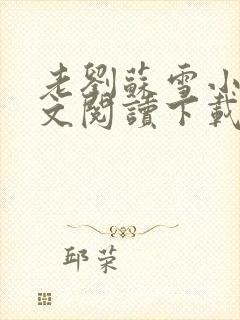 老劉蘇雪小
文閱讀下載
邱荣